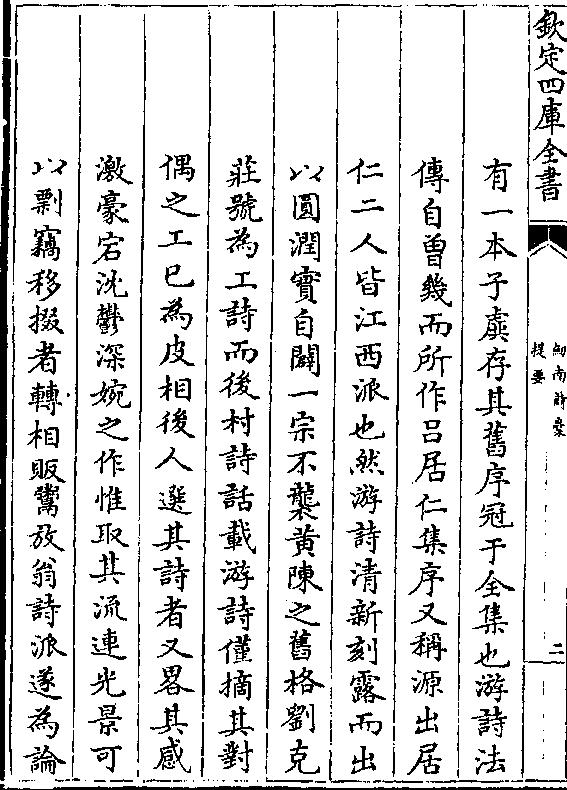 欽定四庫全書
劒南詩稾
提要
二
有一本子虡存其舊序冠于全集也游詩法
傳自曽幾而所作吕居仁集序又稱源出居
仁二人皆江西派也然游詩清新刻露而出
以圓潤實自闢一宗不襲黄陳之舊格劉克
莊號為工詩而後村詩話載游詩僅摘其對
偶之工已為皮相後人選其詩者又畧其感
激豪宕沈鬱深婉之作惟取其流連光景可
以剽竊移掇者轉相販鬻放翁詩派遂為論